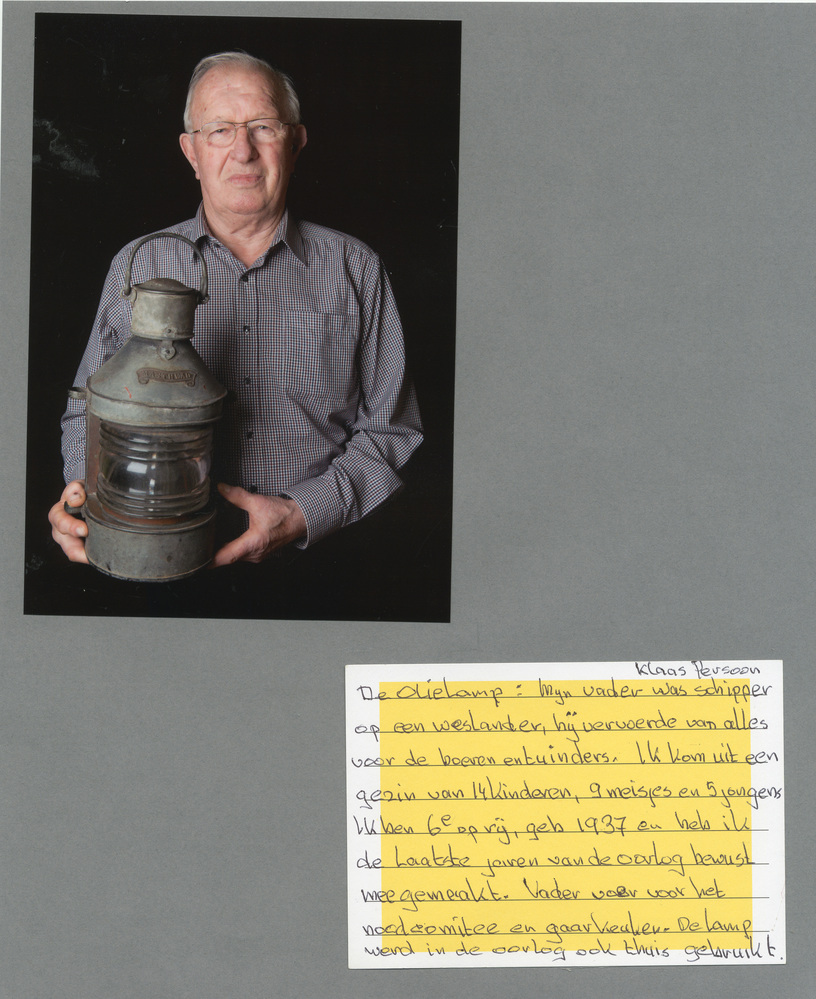 Klaas Persoon
De Olielamp: Mijn vader was schipper
op een weslander, hij vervoerde van alles
voor de boeren en tuinders. Ik kom uit een
gezin van 14 kinderen, 9 meisjes en 5 jongens
Ik ben 6e op rij, geb 1937 en heb ik
de laatste jaren van de oorlog bewust
meegemaakt. Vader voer voor het
noodcomitee en gaarkeuken. De lamp
werd in de oorlog ook thuis gebruikt.